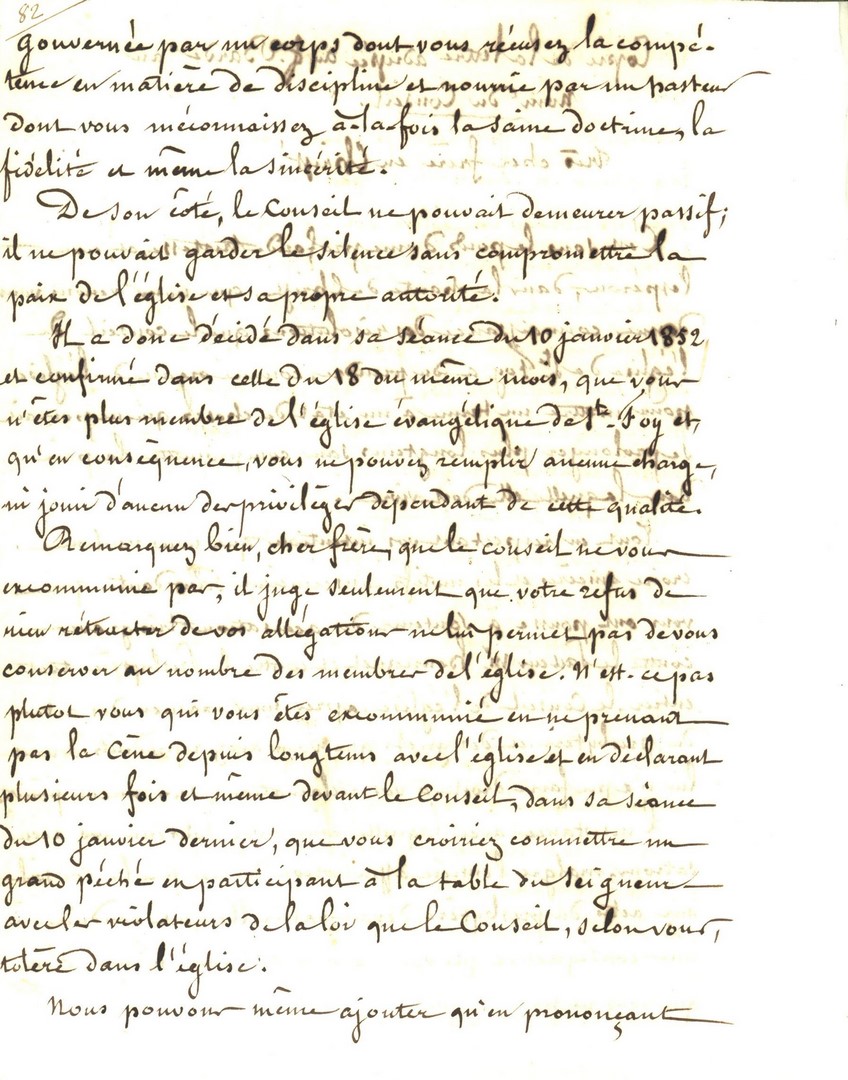 82
gouvernée par un corps dont vous récusez la compé-
tence en matière de discipline et nourrie par un pasteur
dont vous méconnaissez à-la-fois la saine doctrine, la
fidélité et même la sincérité.
De son côté, le Conseil ne pouvait demeurer passif;
il ne pouvait garder le silence sans compromettre la
paix de l'église et sa propre autorité.
Il a donc décidé dans sa séance du 10 janvier 1852
et confirmé dans celle du 18 du même mois, que vous
n'êtes plus membre de l'église évangélique de Ste-Foy et,
qu'en conséquence, vous ne pouvez remplir aucune charge,
ni jouir d'aucun des privilèges dépendant de cette qualité.
Remarquez bien, cher frère, que le conseil ne vous
excommunie pas; il juge seulement que votre refus de
rien rétracter de vos allégations ne lui permet pas de vous
conserver au nombre des membres de l'église. N'est-ce pas
plutôt vous qui vous êtes excommunié en ne prenant
pas la Cène depuis longtems avec l'église et en déclarant
plusieurs fois et même devant le Conseil, dans sa séance
du 10 janvier dernier, que vous croiriez commettre un
grand péché en participant à la table du Seigneur
avec les violateurs de la loi que le Conseil, selon vous,
tolère dans l'église.
Nous pouvons même ajouter qu'en prononçant